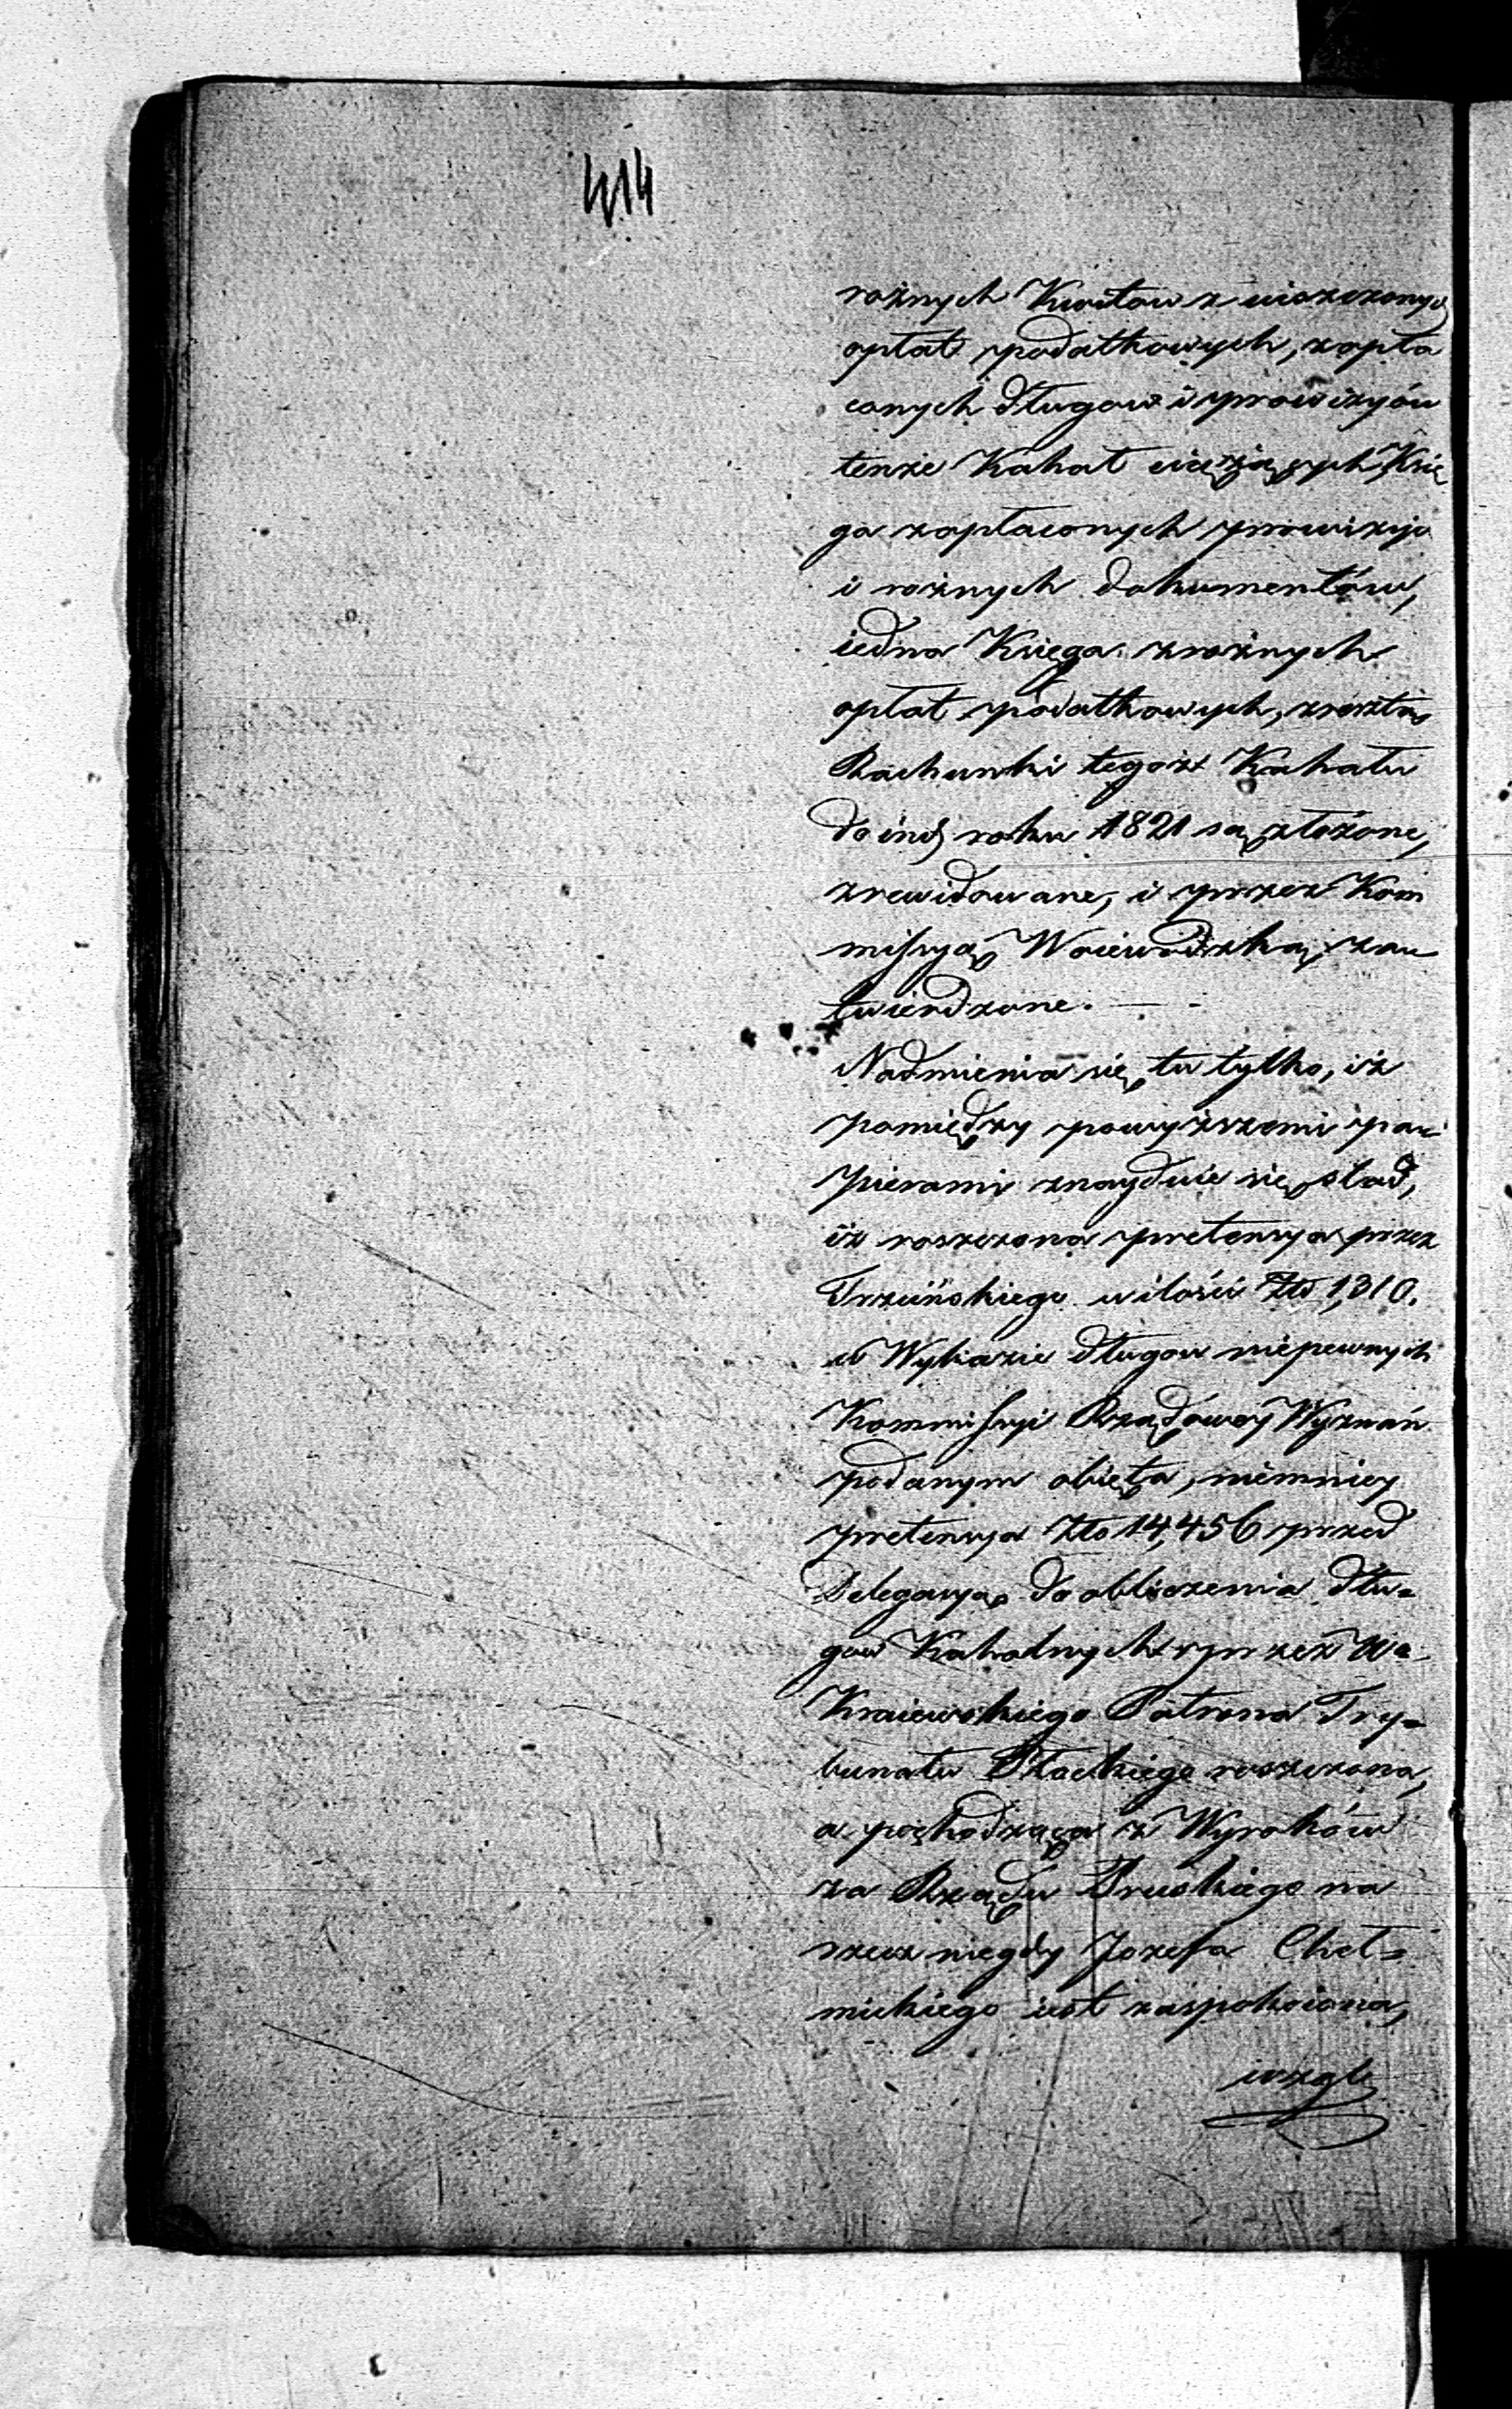 414
rożnych Kwitow z uiszczonych
opłat podatkowych, zapła
conych długow i prowizyów
tenże Kahał ciężących, Xię
ga zapłaconych prowizyi
i rożnych dokumentów,
iedna Księga z rożnych
opłat podatkowych, zresztą
Rachunki tegoż Kahału
do roku 1821 są złożone,
zrewidowane, i przez Kom
missyą Woiewodzką zau
twierdzone.
Nadmienia się tu tylko, iż
pomiędzy powyższemi pa
pierami znayduie się ślad,
iż roszczona pretensya przez
Trzcińskiego w ilości Złp 1,310.
w Wykazie długow niepewnych
Kommissyi Rządowéy Wyznań
podanym obięta, niemniey
pretensya Złp 14,456 przed
Delegacyą do obliczenia dłu=
gow Kahalnych przez W
Kraiewskiego Patrona Try=
bunału Płockiego roszczona,
a pochodząca z Wyroków
za Rządu Pruskiego na
rzecz niegdy Jozefa Chеł=
mickiego iest zaspokoiona,
wzglę